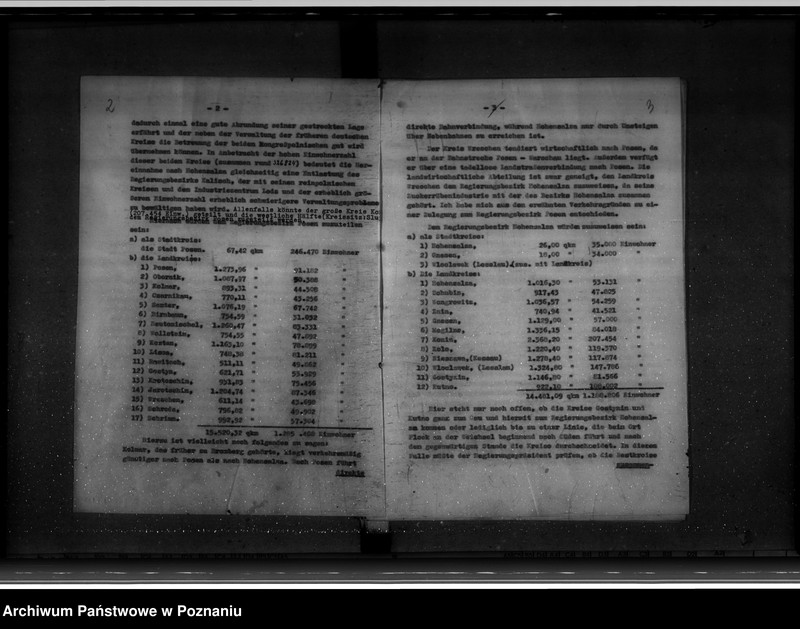 2
- 2 -
dadurch einmal eine gute Abrundung seiner gestreckten Lage
erfährt und der neben der Verwaltung der früheren deutschen
Kreise die Betreuung der beiden kongreßpolnischen gut wird
übernehmen können. In Anbetracht der hohen Einwohnerzahl
dieser beiden Kreise (zusammen rund
) bedeutet die
nach Hohensalza gleichzeitig eine Entlastung des
Regierungsbezirks Kalisch, der mit seinen reinpolnischen
Kreisen und dem Industriezentrum Lodz und der erheblich
Einwohnerzahl erheblich schwierigere Verwaltungsprobleme
zu bewältigen haben wird. Allenfalls könnte der große Kreis
(207.454 Einw.) geteilt und die westliche Hälfte (Kreissitz:
dem Regierungsbezirk Posen zuzuteilen
sein:
a) als Stadtkreis:
die Stadt Posen. 67,42 qkm 246.470 Einwohner
b) die Landkreise:
1) Posen, 1.273,96 " 71.182 "
2) Obornik, 1.087,97 " 50.388 "
3) Kolmar, 893,31 " 44.508 "
4) Czarnikau, 770,11 " 43.256 "
5) Samter, 1.076,19 " 67.742 "
6) Birnbaum, 754,59 " 31.032 "
7) Neutomischel, 1.260,47 " 83.331 "
8) Wollstein, 754,55 " 47.892 "
9) Kosten, 1.163,10 " 78.899 "
10) Lissa, 740,38 " 61.211 "
11) Rawitsch, 511,11 " 49.682 "
12) Gostyn, 621,71 " 55.929 "
13) Krotoschin, 931,83 " 75.456 "
14) Jarotschin, 1.204,74 " 87.346 "
15) Wreschen, 611,14 " 43.690 "
16) Schroda, 796,82 " 49.902 "
17) Schrimm, 958,92 " 57.384 "
15.520,32 qkm 1.205.480 Einwohner
Hierzu ist vielleicht noch folgendes zu sagen:
Kolmar, das früher zu Bromberg gehörte, liegt verkehrsmäßig
günstiger nach Posen als nach Hohensalza. Nach Posen führt
direkte
3
- 3 -
direkte Bahnverbindung, während Hohensalza nur durch Umsteigen
über Nebenbahnen zu erreichen ist.
Der Kreis Wreschen tendiert wirtschaftlich nach Posen, da
er an der Bahnstrecke Posen - Warschau liegt. Außerdem verfügt
er über eine tadellose Landstraßenverbindung nach Posen. Die
landwirtschaftliche Abteilung ist zwar geneigt, den Landkreis
Wreschen dem Regierungsbezirk Hohensalza zuzuweisen, da seine
Zuckerrübenindustrie mit der des Bezirks Hohensalza zusammen
gehört. Ich habe mich aus den erwähnten Verkehrsgründen zu
einer Belegung zum Regierungsbezirk Posen entschieden.
Dem Regierungsbezirk Hohensalza würden zuzuweisen sein:
a) als Stadtkreise:
1) Hohensalza, 26,00 qkm 35.000 Einwohner
2) Gnesen, 18,00 " 34.000 "
3) Wloclawek (Leslau) (zus. mit Landkreis)
b) Die Landkreise:
1) Hohensalza, 1.016,30 " 53.131 "
2) Schubin, 917,43 " 47.825 "
3) Wongrowitz, 1.036,57 " 54.259 "
4) Znin, 740,94 " 41.521 "
5) Gnesen, 1.129,00 " 57.000 "
6) Mogilno, 1.336,15 " 84.018 "
7) Konin, 2.360,20 " 207.454 "
8) Kolo, 1.228,40 " 119.570 "
9) Nieszawa, (Nessau) 1.270,40 " 117.874 "
10) Wloclawek, (Leslau) 1.324,80 " 147.786 "
11) Gostynin, 1.146,80 " 81.566 "
12) Kutno. 922,10 " 108.802 "
14.481,09 qkm 1.188.806 Einwohner
Hier steht nur noch offen, ob die Kreise Gostynin und
Kutno ganz zum Gau und hiermit zum Regierungsbezirk Hohensalza
kommen oder lediglich bis zu einer Linie, die beim Ort
Plock an der Weichsel beginnend nach Süden führt und nach
dem gegenwärtigen Stande die Kreise durchschneidet. In diesem
Falle müßte der Regierungspräsident prüfen, ob die Restkreise
Archiwum Państwowe w Poznaniu